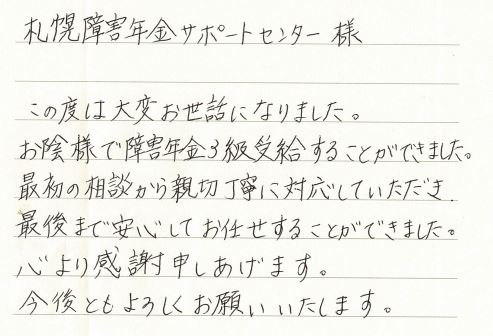 札幌障害年金サポートセンター 様
この度は大変お世話になりました。
お陰様で障害年金3級受給することができました。
最初の相談から親切丁寧に対応していただき
最後まで安心してお任せすることができました。
心より感謝申しあげます。
今後ともよろしくお願いいたします。